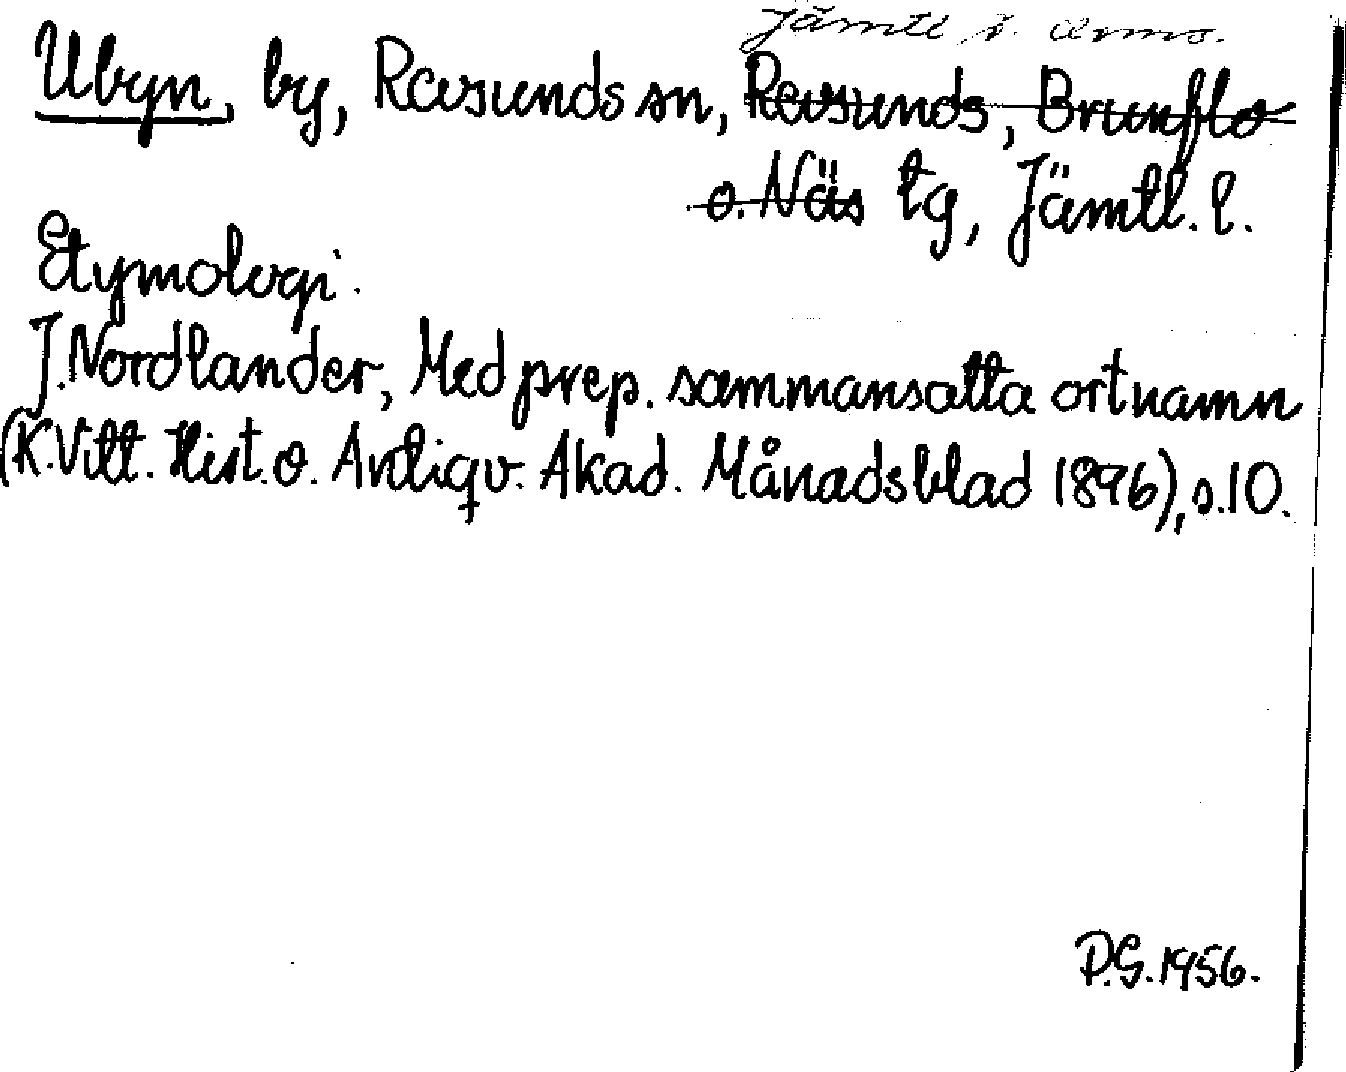 Jämtl s.
Ubyn, by, Revsunds sn, Revsunds, Brunflo
o. Näs tg, Jämtl. l.
Etymologi.
J. Nordlander, Med prep. sammansatta ortnamn
(K. Vitt. Hist. o. Antiqv. Akad. Månadsblad 1896), s. 10.
P.G. 1956.